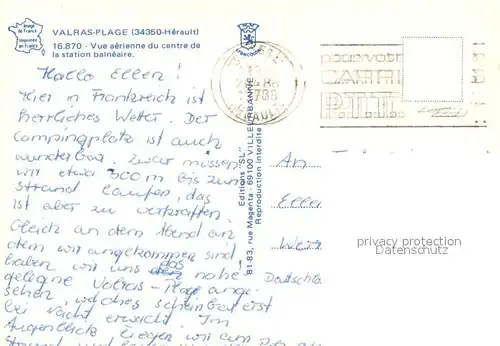 Image
de France
Imprimée
en France
VALRAS-PLAGE (34350-Hérault)
16.870 - Vue aérienne du centre de
la station balnéaire.
francolor
HERAULT
pour votre
CARRI
P.T.T.
Editions "S.L."
81-83, rue Magenta - 69100 VILLEURBANNE
Reproduction interdite
Hallo Ellen!
Hier in Frankreich ist
herrliches Wetter. Der
Campingplatz ist auch
wunderbar. Zwar müssen
wir etwa 300m bis zum
Strand laufen, das
ist aber zu verkraften.
Gleich an dem Abend an
dem wir angekommen sind
haben wir uns das nahe
gelegene Valras-Plage ange-
sehen, welches scheinbar erst
bei Nacht erwacht. Im
Augenblick liegen wir am
Strand und
An
Elle
Wer
Deutschl.
privacy protection
Datenschutz